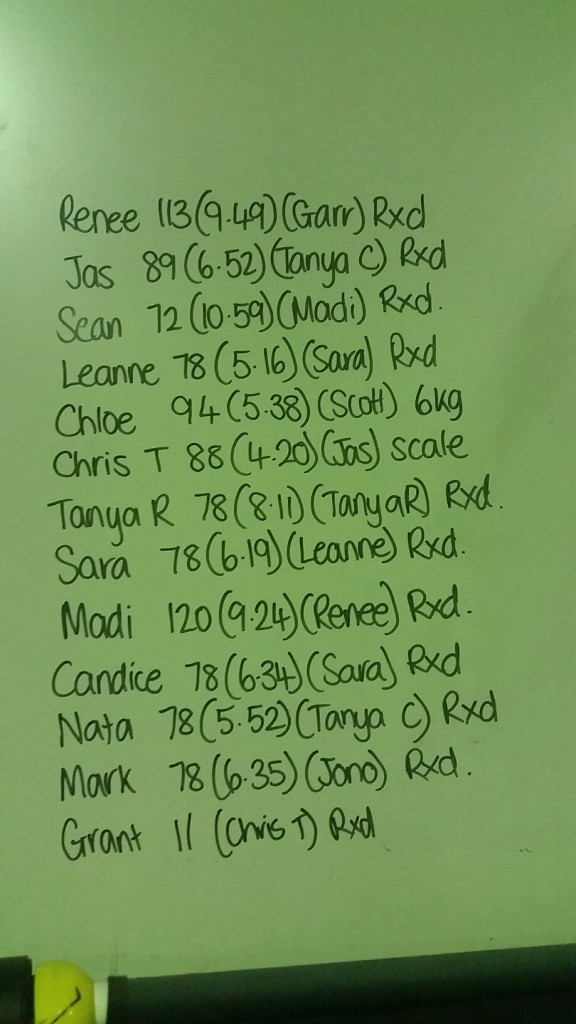 Renee 113 (9.49) (Garr) Rxd
Jas 89 (6.52) (Tanya C) Rxd
Sean 72 (10.59) (Madi) Rxd.
Leanne 78 (5.16) (Sara) Rxd
Chloe 94 (5.38) (Scott) 6kg
Chris T 88 (4.20) (Jas) scale
Tanya R 78 (8.11) (Tanya R) Rxd.
Sara 78 (6.19) (Leanne) Rxd.
Madi 120 (9.24) (Renee) Rxd.
Candice 78 (6.34) (Sara) Rxd
Nata 78 (5.52) (Tanya C) Rxd
Mark 78 (6.35) (Jono) Rxd.
Grant 11 (Chris T) Rxd